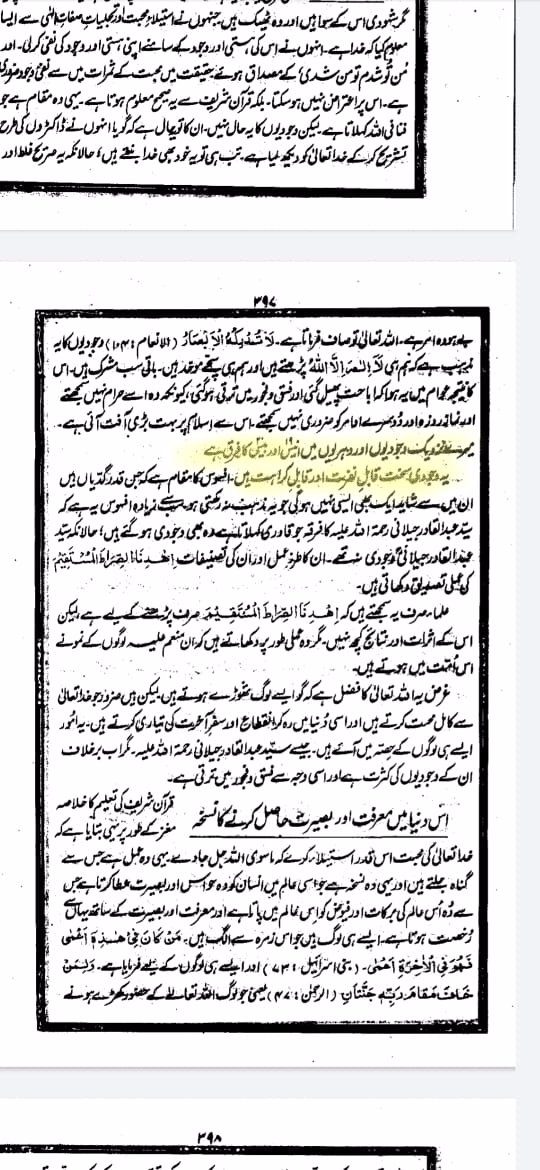 گر شہودی اس کے سوا ہیں اور وہ ٹھیک ہیں جنہوں نے استیلاءِ محبت اور تجلیات صفاتِ الٰہی سے ایسا
معلوم کیا کہ خدا ہے۔ انہوں نے اس کی ہستی اور وجود کے سامنے اپنی ہستی اور وجود کی نفی کر لی۔ اور
من تو شدم تو من شدی کے مصداق ہوئے۔ حقیقت میں محبت کے ثمرات میں سے نفی وجود ضروری
ہے۔ اس پر اعتراض نہیں ہو سکتا۔ بلکہ قرآن شریف سے یہ صحیح معلوم ہوتا ہے۔ یہی وہ مقام ہے جو
فنا فی اللہ کہلاتا ہے۔ لیکن وجودیوں کا یہ حال نہیں۔ ان کا تو یہ حال ہے کہ گویا انہوں نے ڈاکٹروں کی طرح
تشریح کر کے خدا تعالیٰ کو دیکھ لیا ہے۔ تب ہی تو یہ خود بھی خدا بنتے ہیں؛ حالانکہ یہ صریح غلط اور
۳۹۷
بے ہودہ امر ہے۔ اللہ تعالیٰ تو صاف فرماتا ہے۔ لَا تُدْرِكُهُ الْاَبْصَارُ (الانعام : ۱۰۴) وجودیوں کا یہ
مذہب ہے کہ ہم ہی لَا اِلٰهَ اِلَّا اللّٰهُ پڑھتے ہیں اور ہم ہی سچے موحد ہیں۔ باقی سب مشرک ہیں۔ اس
کا نتیجہ عوام میں یہ ہوا کہ اباحت پھیل گئی اور فسق و فجور میں ترقی ہو گئی؛ کیونکہ وہ اسے حرام نہیں سمجھتے
اور نماز روزہ اور دوسرے اوامر کو ضروری نہیں سمجھتے۔ اس سے اسلام پر بہت بڑی آفت آئی ہے۔
میرے نزدیک وجودیوں اور دہریوں میں انیس اور بیس کا فرق ہے
یہ وجودی سخت قابلِ نفرت اور قابلِ کراہت ہیں۔ افسوس کا مقام ہے کہ جس قدر گدیاں ہیں
ان میں سے شاید ایک بھی ایسی نہیں ہو گی جو یہ مذہب نہ رکھتی ہو۔ سب سے زیادہ افسوس یہ ہے کہ
سید عبدالقادر جیلانی رحمۃ اللہ علیہ کا فرقہ جو قادری کہلاتا ہے وہ بھی وجودی ہو گئے ہیں؛ حالانکہ سید
عبدالقادر جیلانی وجودی نہ تھے۔ ان کا طرزِ عمل اور ان کی تصنیفات اِهْدِنَا الصِّرَاطَ الْمُسْتَقِيْمَ
کی عملی تصدیق دکھاتی ہیں۔
علماء صرف یہ سمجھتے ہیں کہ اِهْدِنَا الصِّرَاطَ الْمُسْتَقِيْمَ صرف پڑھنے کے لیے ہے لیکن
اس کے اثرات اور نتائج کچھ نہیں۔ مگر وہ عملی طور پر دکھاتے ہیں کہ ان منعم علیہ لوگوں کے نمونے
اس امت میں ہوتے ہیں۔
غرض یہ اللہ تعالیٰ کا فضل ہے کہ گو ایسے لوگ تھوڑے ہوتے ہیں لیکن ہیں ضرور جو خدا تعالیٰ
سے کامل محبت کرتے ہیں اور اسی دنیا میں رہ کر انقطاع اور سفرِ آخرت کی تیاری کرتے ہیں۔ یہ امور
ایسے ہی لوگوں کے حصہ میں آئے ہیں۔ جیسے سید عبدالقادر جیلانی رحمۃ اللہ علیہ۔ مگر اب برخلاف
ان کے وجودیوں کی کثرت ہے اور اسی وجہ سے فسق و فجور میں ترقی ہے۔
اس دنیا میں معرفت اور بصیرت حاصل کرنے کا نسخہ
قرآن شریف کی تعلیم کا خلاصہ
مغز کے طور پر یہی بتایا ہے کہ
خدا تعالیٰ کی محبت اس قدر استیلاء کرے کہ ماسوی اللہ جل جاوے۔ یہی وہ عمل ہے جس سے
گناہ جلتے ہیں اور یہی وہ نسخہ ہے جو اسی عالم میں انسان کو وہ حواس اور بصیرت عطا کرتا ہے جس
سے وہ اُس عالم کی برکات اور فیوض کو اس عالم میں پاتا ہے اور معرفت اور بصیرت کے ساتھ یہاں سے
رخصت ہوتا ہے۔ ایسے ہی لوگ ہیں جو اس زمرہ سے الگ ہیں۔ مَنْ كَانَ فِيْ هٰذِهٖٓ اَعْمٰى
فَهُوَ فِي الْاٰخِرَةِ اَعْمٰى۔ (بنی اسرائیل : ۷۳) اور ایسے ہی لوگوں کے لیے فرمایا ہے۔ وَلِمَنْ
خَافَ مَقَامَ رَبِّهٖ جَنَّتَانِ (الرحمٰن : ۴۷) یعنی جو لوگ اللہ تعالیٰ کے حضور کھڑے ہونے
۳۹۸